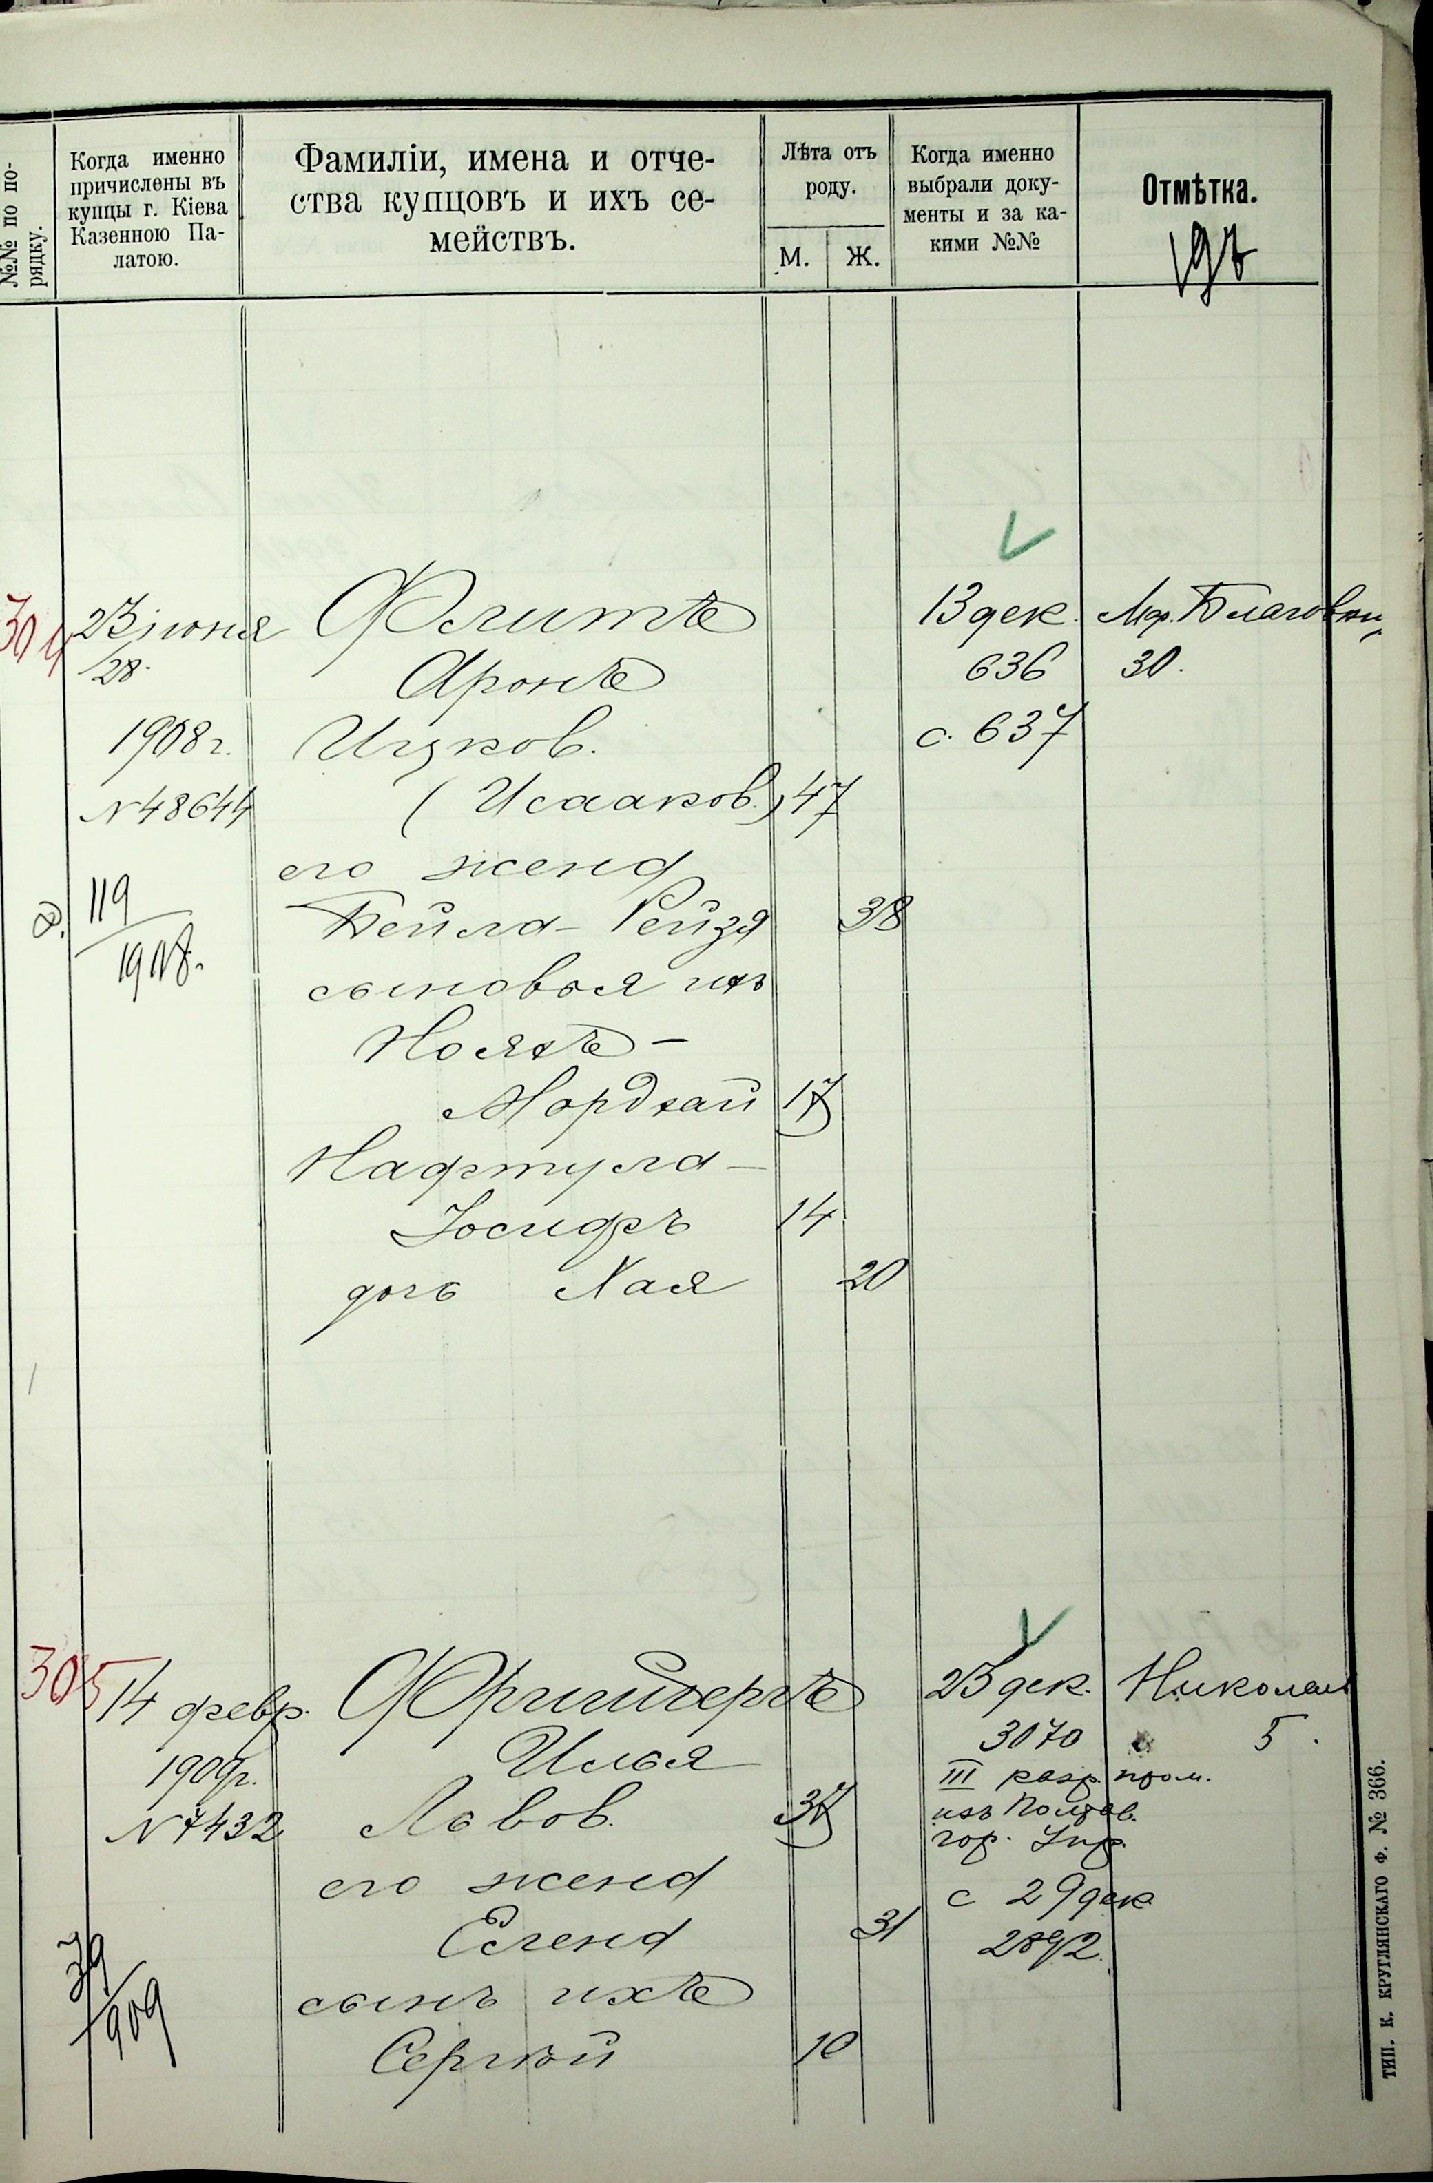 №№ по по-
рядку.
Когда именно
причислены въ
купцы г. Кіева
Казенною Па-
латою.
Фамиліи, имена и отче-
ства купцовъ и ихъ се-
мействъ.
Лѣта отъ
роду.
М.
Ж.
Когда именно
выбрали доку-
менты и за ка-
кими №№
Отмѣтка.
304
23 іюня
/28
1908 г.
№ 48644
119
1908.
Флитъ
Аронъ
Ицков.
(Исааков.) 47
его жена
Бейла-Рейзя 38
сыновья ихъ
Нояхъ-
Мордхай 17
Нафтула-
Іосифъ 14
дочь Хая 20
13 дек.
636
с. 637
Мар. Благовѣщ.
30.
305
14 февр.
1909 г.
№ 7432
39
909
Илья
Львов. 37
его жена
Елена 31
сынъ ихъ
Сергѣй 10
23 дек.
3070
III разр. пром.
изъ Полтав.
гор. Упр.
с 29 дек.
2892.
Николаев
5.
ТИП. К. КРУГЛЯНСКАГО Ф. № 366.